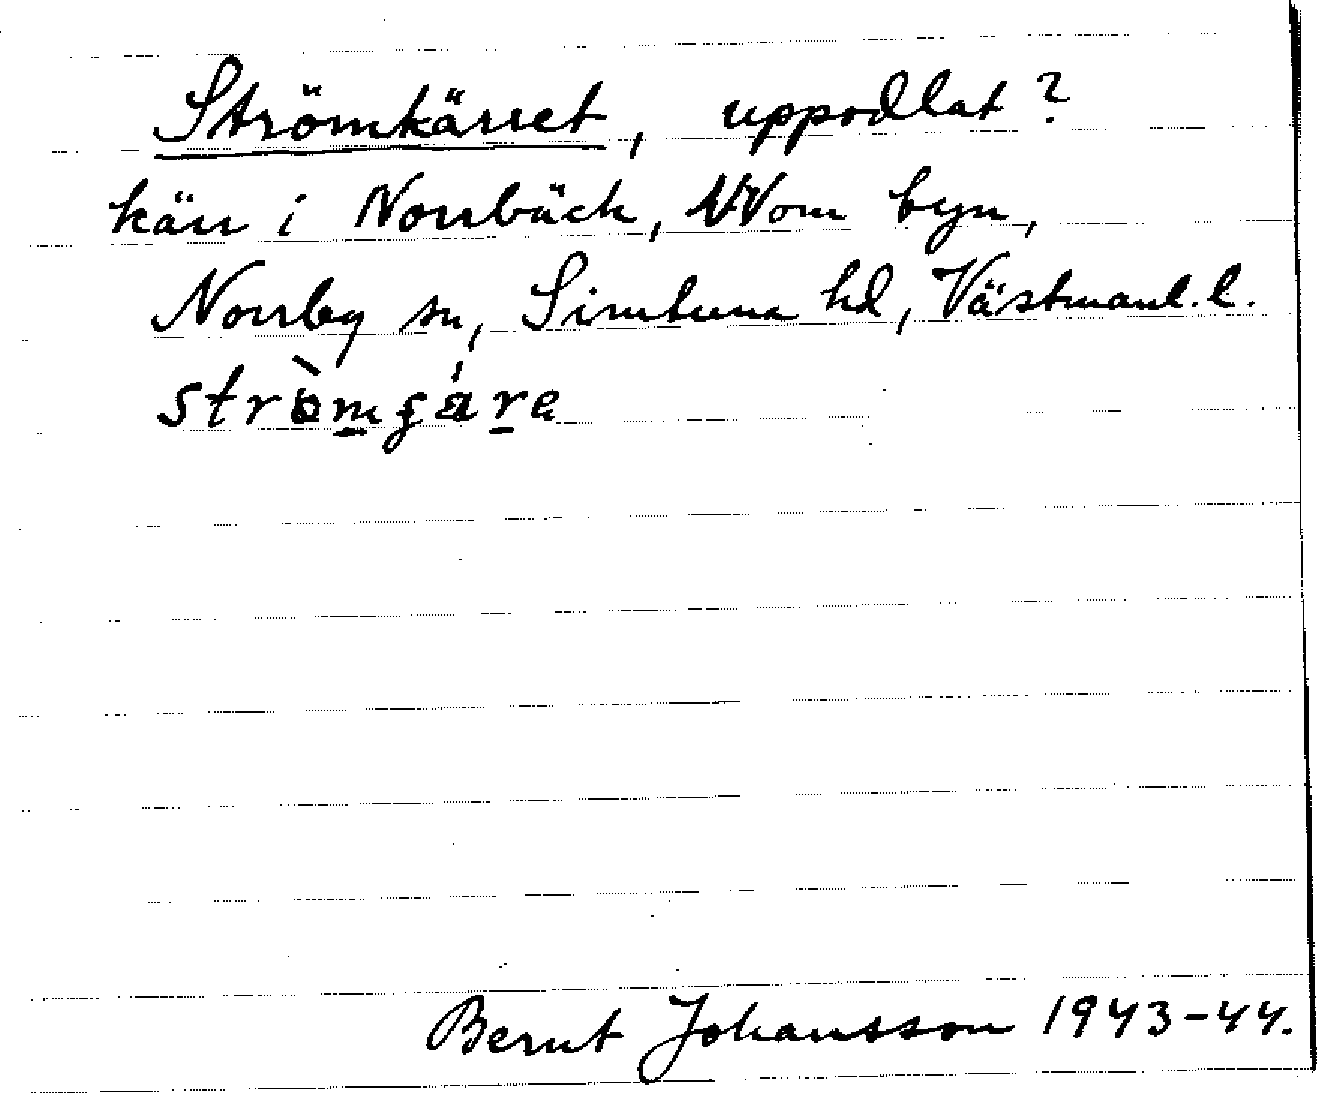 Strömkärret, uppodlat?
kärr i Norrbäck, NV om byn,
Norrby sn, Simtuna hd, Västmanl. l.
Bernt Johansson 1943-44.